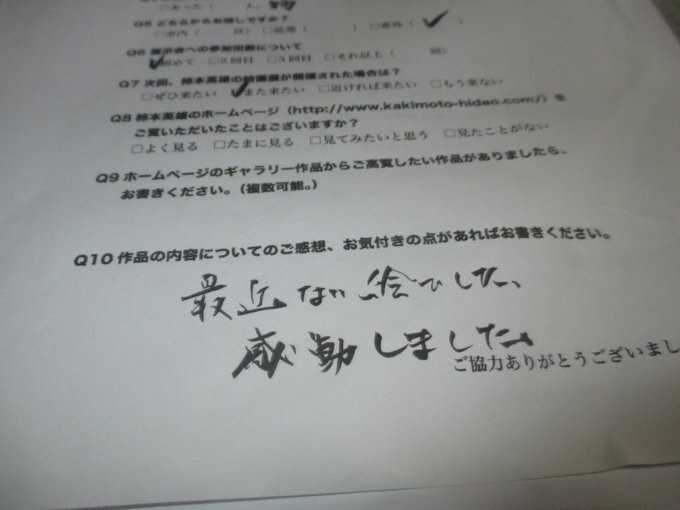 Q5 どちらからお越しですか？
□市内（　　　区）□近郊（　　　）□県外（　✓　）
Q6 展示会への参加回数について
□初めて □2回目 □3回目 □それ以上（　　　回）
Q7 次回、柿本英雄の絵画展が開催された場合は？
□ぜひ来たい □また来たい □近ければ来たい □もう来ない
Q8 柿本英雄のホームページ（http://www.kakimoto-hideo.com/）を
ご覧いただいたことはございますか？
□よく見る □たまに見る □見てみたいと思う □見たことがない
Q9 ホームページのギャラリー作品からご高覧したい作品がありましたら、
お書きください。（複数可能。）
Q10 作品の内容についてのご感想、お気付きの点があればお書きください。
最近ない絵でした、
感動しました。
ご協力ありがとうございまし